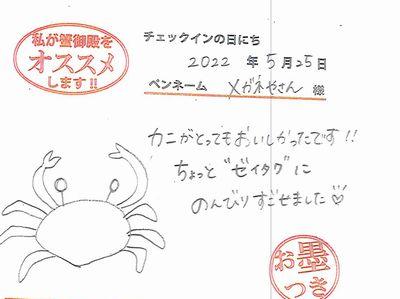 私が蟹御殿を
オススメ
します!!
チェックインの日にち
2022 年 5月25日
ペンネーム メガネやさん 様
カニがとってもおいしかったです!!
ちょっと"ゼイタク"に
のんびりすごせました♡
お墨
つき